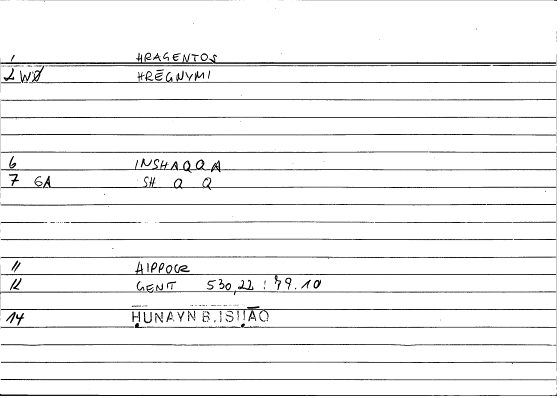 1 HRAGENTOS
2 WØ HRĒGNYMI
6 INSHAQQA
7 GA SH Q Q
11 HIPPOCR
12 GENIT 530,22 : 79.10
14 ḤUNAYN B.ISḤĀQ